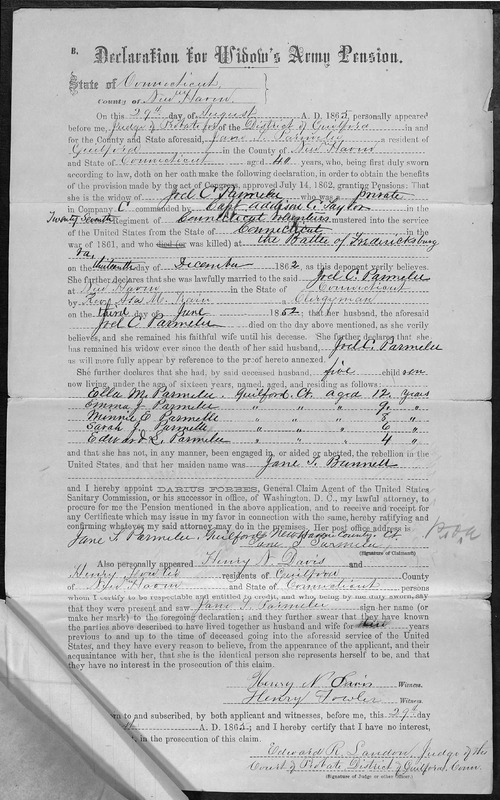 B. Declaration for Widow's Army Pension.
State of Connecticut,
County of New Haven
On this 29th day of August A. D. 1863, personally appeared
before me, Judge of Probate of the District of Guilford in and
for the County and State aforesaid, Jane S. Parmelee a resident of
Guilford in the County of New Haven
and State of Connecticut aged 40 years, who, being first duly sworn
according to law, doth on her oath make the following declaration, in order to obtain the benefits
of the provision made by the act of Congress, approved July 14, 1862, granting Pensions: That
she is the widow of Joel C. Parmelee who was a private
in Company commanded by Capt. Addison C. Taylor in the
Twenty Seventh Regiment of Connecticut Volunteers mustered into the service
of the United States from the State of Connecticut in the
war of 1861, and who died (or was killed) at the Battle of Fredericksburg
Va.
on the thirteenth day of December 1862, as this deponent verily believes.
She further declares that she was lawfully married to the said Joel C. Parmelee
at New Haven in the State of Connecticut
by Rev. M. a Clergyman
on the third day of June 18 ; that her husband, the aforesaid
Joel C. Parmelee died on the day above mentioned, as she verily
believes, and she remained his faithful wife until his decease. She further declares that she
has remained his widow ever since the death of her said husband, Joel C. Parmelee
as will more fully appear by reference to the proof hereto annexed.
She further declares that she had, by said deceased husband, five children
now living, under the age of sixteen years, named, aged, and residing as follows:
Ella M. Parmelee. Guilford, Ct. aged 12 years
Emma J. Parmelee " " " 9 "
Minnie C Parmelee " " " 8 "
Sarah J. Parmelee " " " 6 "
Edward L. Parmelee " " " 4 "
and that she has not, in any manner, been engaged in, or aided or abetted, the rebellion in the
United States, and that her maiden name was Jane S. Bunnell
and I hereby appoint DARIUS FORBES, General Claim Agent of the United States
Sanitary Commission, or his successor in office, of Washington, D. C., my lawful attorney, to
procure for me the Pension mentioned in the above application, and to receive and receipt for
any Certificate which may issue in my favor in connection with the same, hereby ratifying and
confirming whatever my said attorney may do in the premises. Her post office address is
Jane S. Parmelee, Guilford, New Haven County, Ct.
Jane S Parmelee
(Signature of Claimant)
Also personally appeared Henry N. Davis and
Henry Fowler residents of Guilford County
of New Haven and State of Connecticut persons
whom I certify to be respectable and entitled to credit, and who, being by me duly sworn, say
that they were present and saw Jane S. Parmelee sign her name (or
make her mark) to the foregoing declaration; and they further swear that they have known
the parties above described to have lived together as husband and wife for years
previous to and up to the time of deceased going into the aforesaid service of the United
States, and they have every reason to believe, from the appearance of the applicant, and their
acquaintance with her, that she is the identical person she represents herself to be, and that
they have no interest in the prosecution of this claim.
Henry N. Davis Witness.
Henry Fowler Witness.
rn to and subscribed, by both applicant and witnesses, before me, this 29th day
A. D. 1863; and I hereby certify that I have no interest,
in the prosecution of this claim.
Edward R. Landon, Judge of the
Court of Probate District of Guilford, Conn.
(Signature of Judge or other officer.)